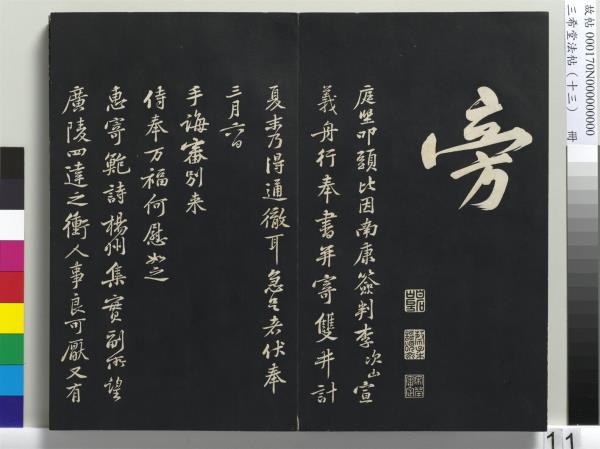 旁
庭堅叩頭比因南康簽判李次山宣
義舟行奉書并寄雙井計
夏末乃得通徹耳急足者伏奉
三月六日
手誨審別来
侍奉万福何慰如之
惠寄鮑詩楊州集實副所望
廣陵四達之衝人事良可厭又有
故帖 000170N000000000
三希堂法帖（十三） 冊
11